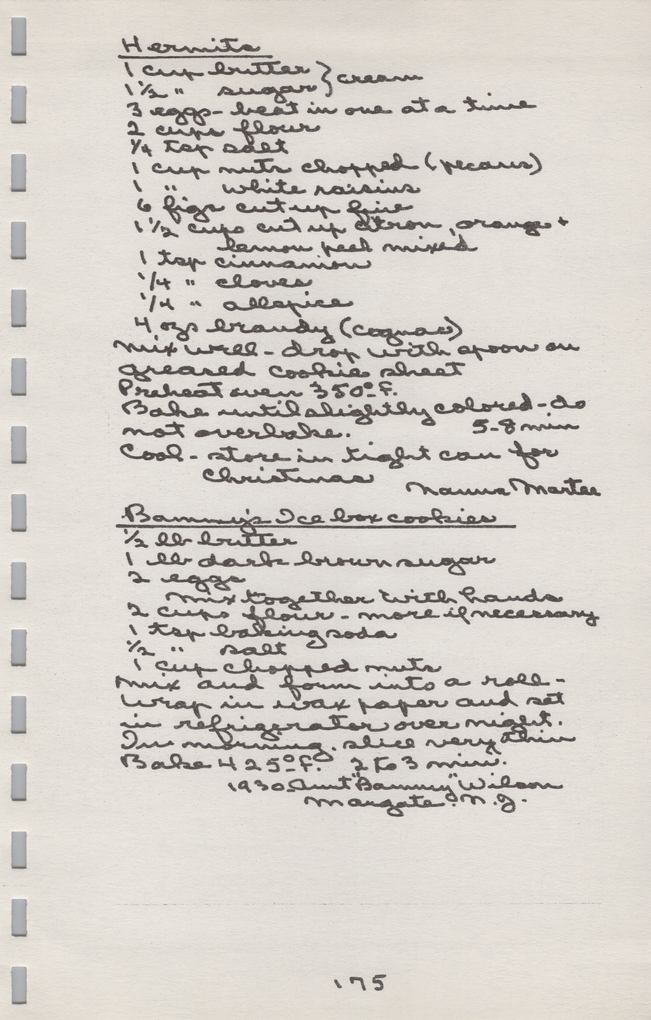 Hermits
1 cup butter } cream
1½ " sugar
3 eggs - beat in one at a time
2 cups flour
¼ tsp salt
1 cup nuts chopped (pecans)
1 " white raisins
6 figs cut up fine
1½ cups cut up citron, orange +
lemon peel mixed
1 tsp cinnamon
1/4 " cloves
1/4 " allspice
4 ozs brandy (cognac)
Mix well - drop with spoon on
greased cookie sheet
Preheat oven 350° F.
Bake until slightly colored - do
not overbake. 5-8 min
Cool - store in tight can for
Christmas
Nanna Martee
Bammy's Ice box cookies
½ lb butter
1 lb dark brown sugar
2 eggs
Mix together with hands
2 cups flour - more if necessary
1 tsp baking soda
½ " salt
1 cup chopped nuts
Mix and form into a roll -
Wrap in wax paper and set
in refrigerator over night.
In morning, slice very thin
Bake 425° F. 2 to 3 min.
1930 Aunt "Bammy" Wilson
Margate, N.J.
175